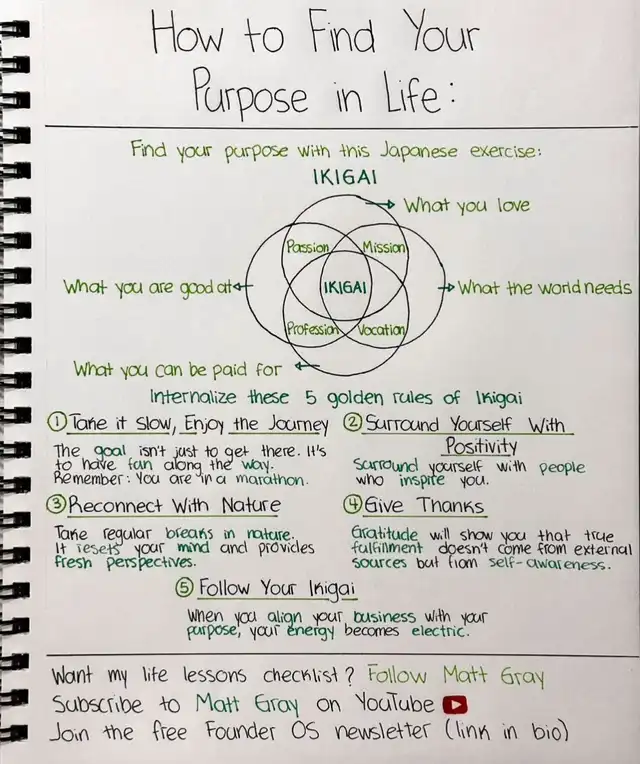 How to Find Your
Purpose in Life:
Find your purpose with this Japanese exercise:
IKIGAI
What you love
Passion
Mission
What you are good at
IKIGAI
What the world needs
Profession
Vocation
What you can be paid for
Internalize these 5 golden rules of Ikigai
① Take it Slow, Enjoy the Journey
The goal isn't just to get there. It's
to have fun along the way.
Remember: You are in a marathon.
② Surround Yourself With
Positivity
Surround yourself with people
who inspire you.
③ Reconnect With Nature
Take regular breaks in nature.
It resets your mind and provides
fresh perspectives.
④ Give Thanks
Gratitude will show you that true
fulfillment doesn't come from external
sources but from self-awareness.
⑤ Follow Your Ikigai
When you align your business with your
purpose, your energy becomes electric.
Want my life lessons checklist? Follow Matt Gray
Subscribe to Matt Gray on YouTube
Join the free Founder OS newsletter (link in bio)